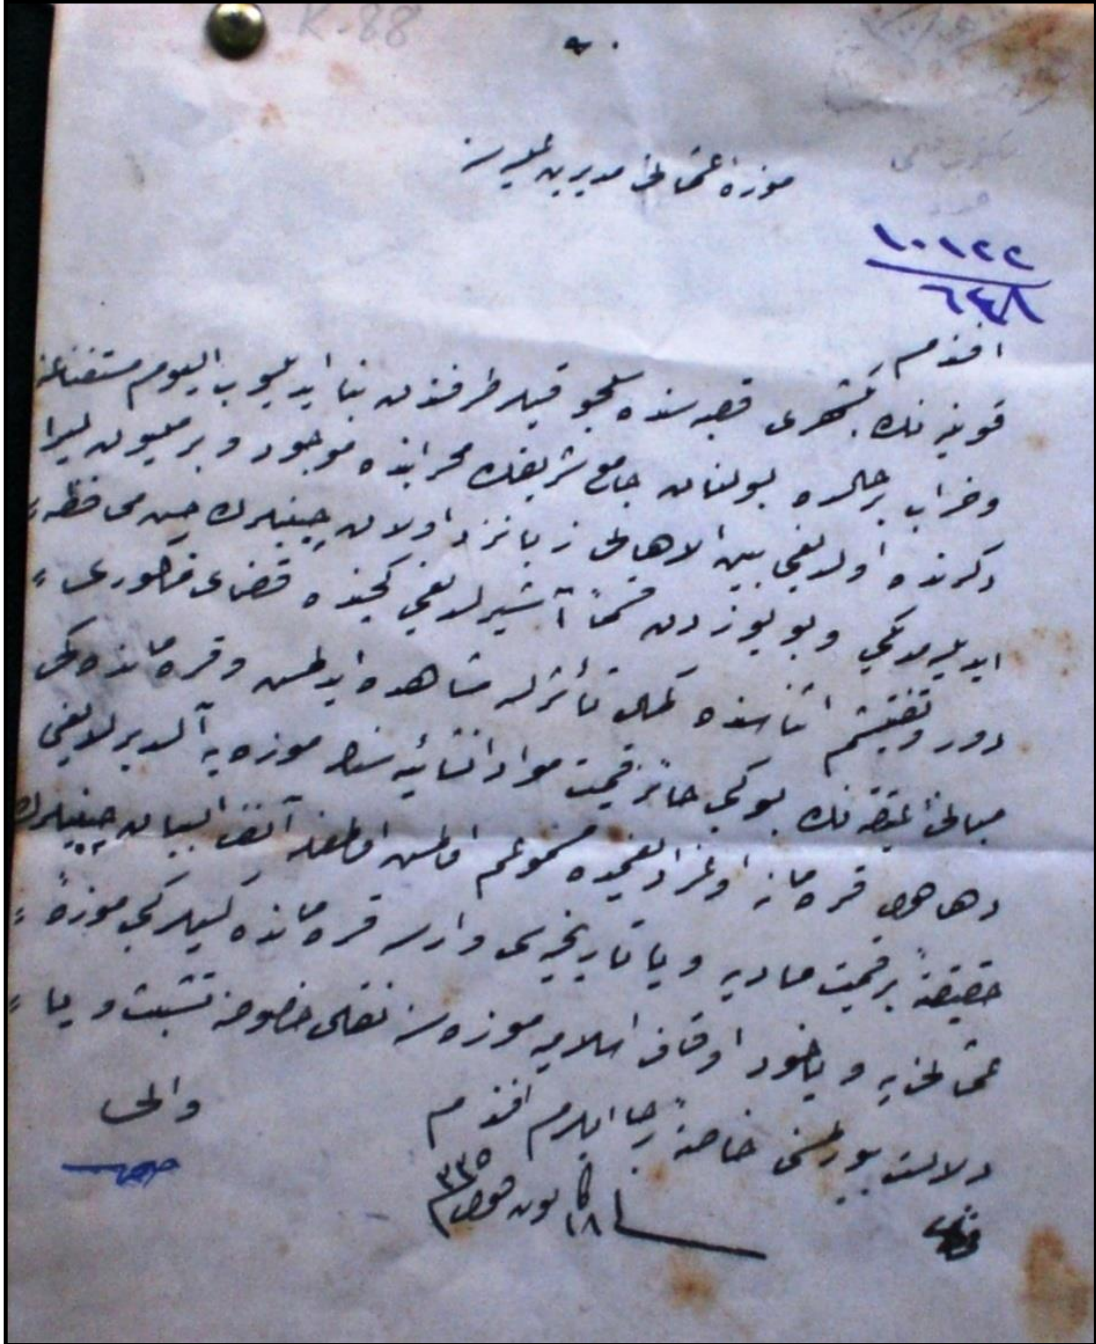 K.88
موزهٔ عثمانی مدیریت علیه‌سنه
١٠١٢٢
٦٤٨
افندم
قونیه‌نك قصبه‌سنده سلجوقیلر طرفندن بنا ایدیلوب الیوم
وخراب برحالده بولنان جامع شریفك محرابنده موجود وبر ملیون لیرا
دكرنده اولدیغی بین الاهالی زبانزد اولان چینیلرك حسن محافظه
ایدیلمدیكی وبو یوزدن قسماً آشیرلدیغی كچنده قضای مذكوری
دور وتفتیشم اثناسنده كمال تأثرله مشاهده ایدلمش وقره‌مانده‌كی
مبانئ عتیقه‌نك بوكبی حائز قیمت مواد انشائیه‌سنك موزه‌یه آلدیرلدیغی
دها قره‌مانه اوغرادیغمده مسموعم اولمش اولمغله آنف البیان چینیلرك
حقیقةً بر قیمت مادیه ویا تاریخیه‌سی وارسه قره‌مانده‌كیلر كبی موزهٔ
عثمانی‌یه ویاخود اوقاف اسلامیه موزه‌سنه نقلی خصوصنه تشبث ویا
دلالت بیورلمسنی خاصةً رجا ایلرم افندم
١٨ كانون ٣٣٥
والی